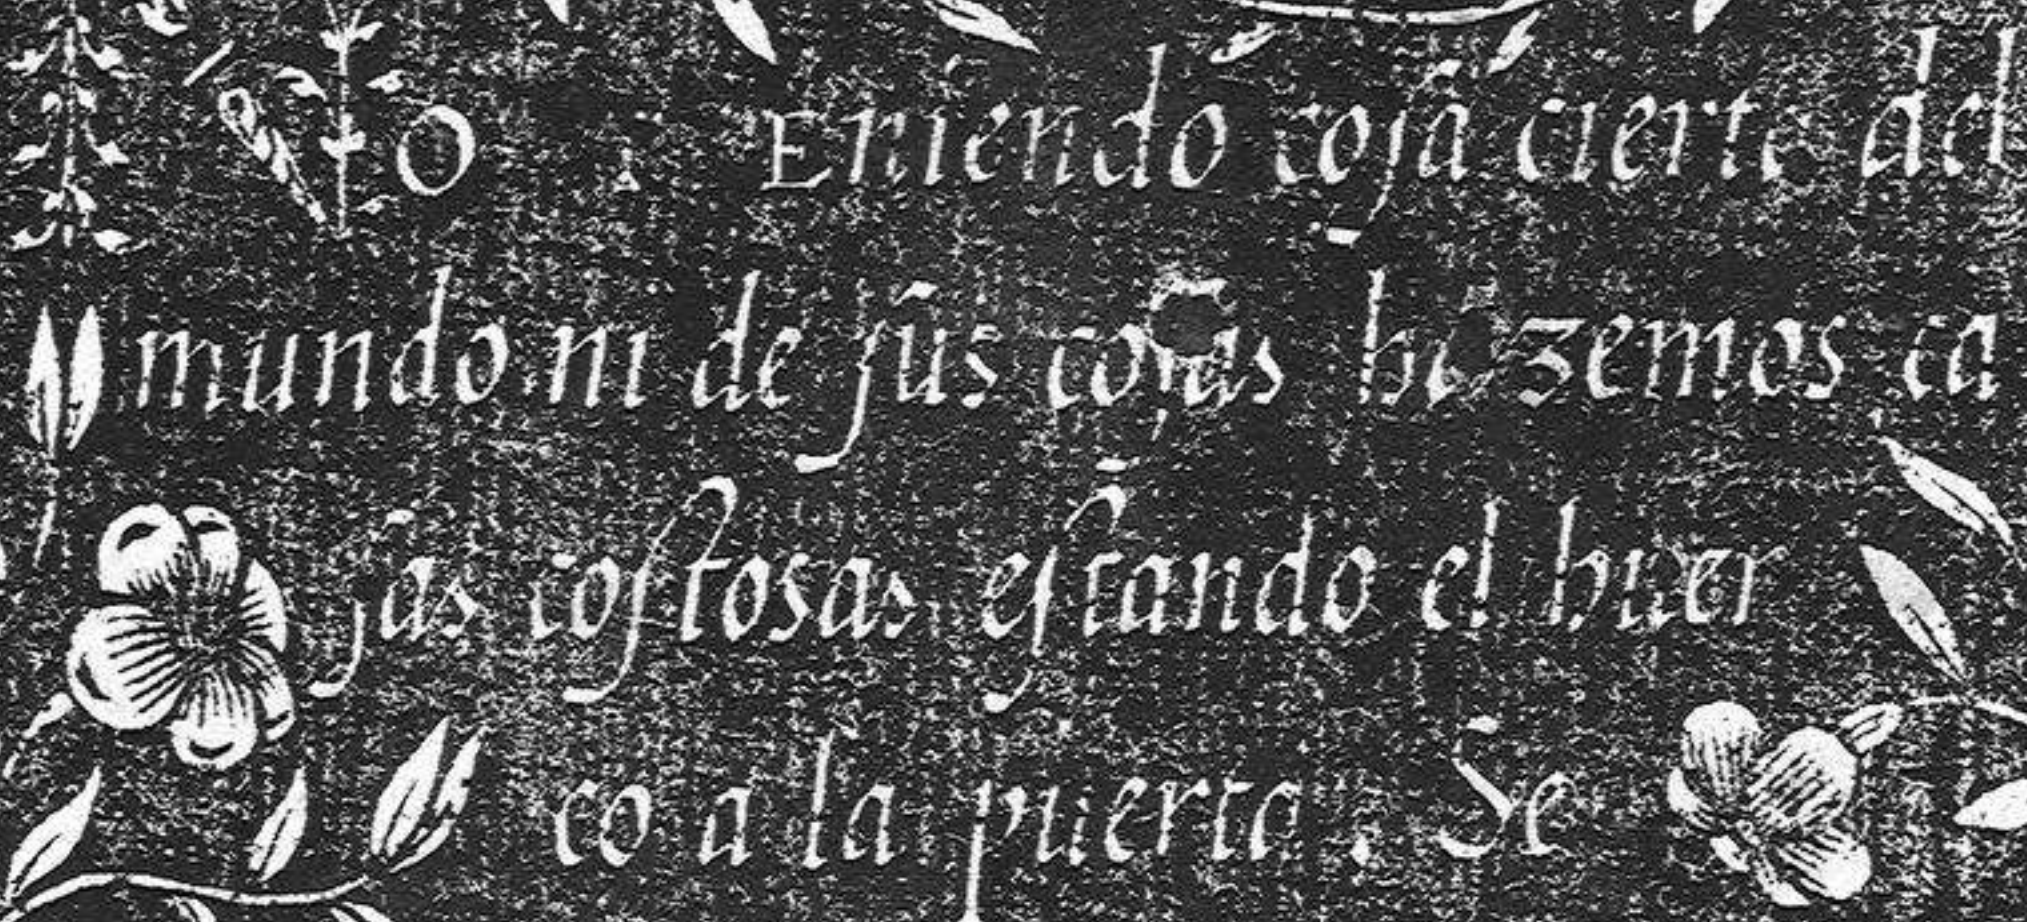 O tEniendo cosa cierta del
mundo ni de sus cosas hazemos ca
sas costosas, estando el huer
co a la puerta. Se